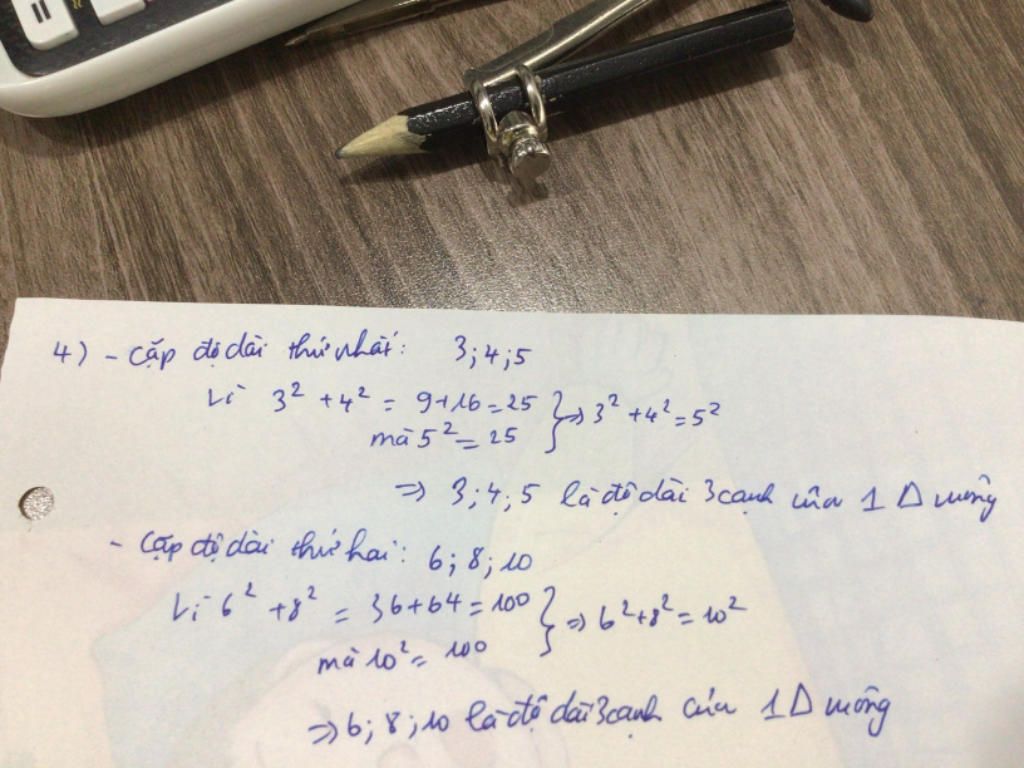 =
4) - Cặp độ dài thứ nhất: 3; 4; 5
Vì 3² + 4² = 9 + 16 = 25 } => 3² + 4² = 5²
mà 5² = 25
=> 3; 4; 5 là độ dài 3 cạnh của 1 Δ vuông
- Cặp độ dài thứ hai: 6; 8; 10
Vì 6² + 8² = 36 + 64 = 100 } => 6² + 8² = 10²
mà 10² = 100
=> 6; 8; 10 là độ dài 3 cạnh của 1 Δ vuông